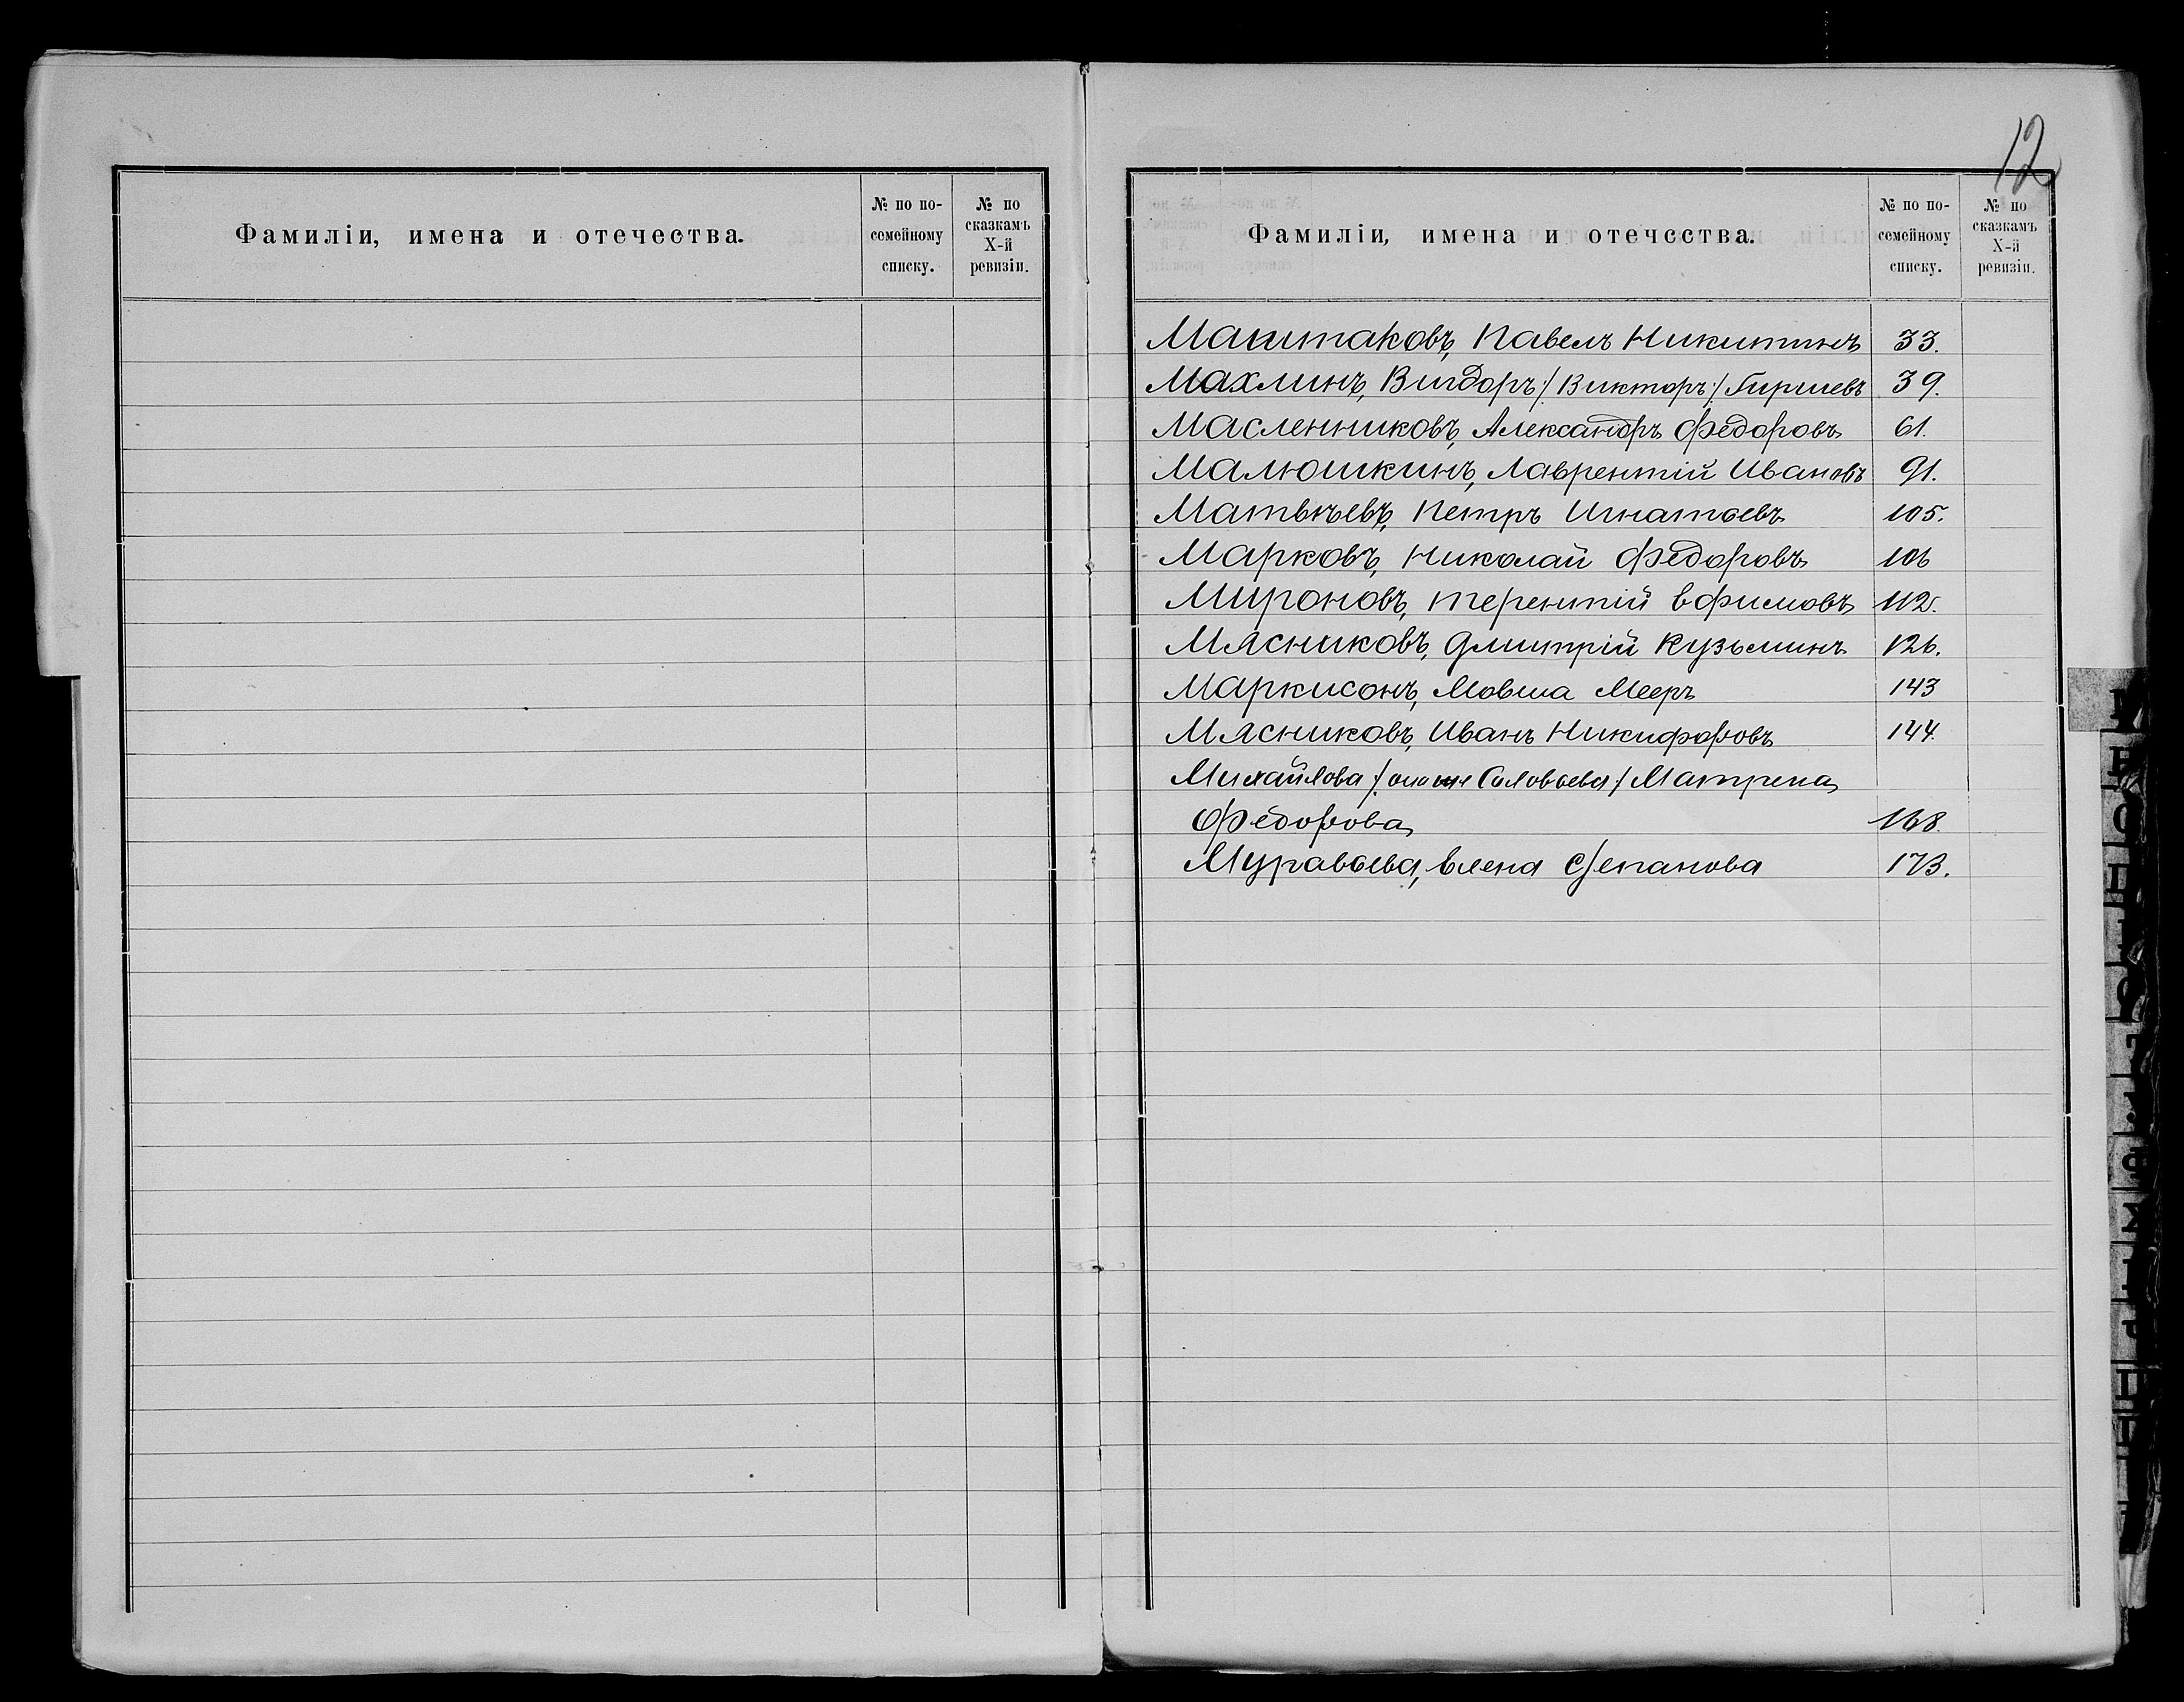 Фамиліи, имена и отечества.
№ по по-
семейному
списку.
№ по
сказкамъ
X-й
ревизіи.
12
Фамиліи, имена и отечества.
№ по по-
семейному
списку.
№ по
сказкамъ
X-й
ревизіи.
Маштаковъ, Павелъ Никитинъ 33.
Махлинъ, Вигдоръ /:Викторъ:/ Гиршевъ 39.
Масленниковъ, Александръ Федоровъ 61.
Малюшкинъ, Лаврентій Ивановъ 91.
Матвѣевъ, Петръ Игнатьевъ 105.
Марковъ, Николай Федоровъ 106
Мироновъ, Терентій Ефимовъ 112.
Мясниковъ, Дмитрій Кузьминъ 126.
Маркисонъ, Мовша Мееръ 143
Мясниковъ, Иванъ Никифоровъ 144.
Михайлова /:она же Соловьева:/ Матрена
Федорова 168.
Муравьева, Елена Степанова 173.